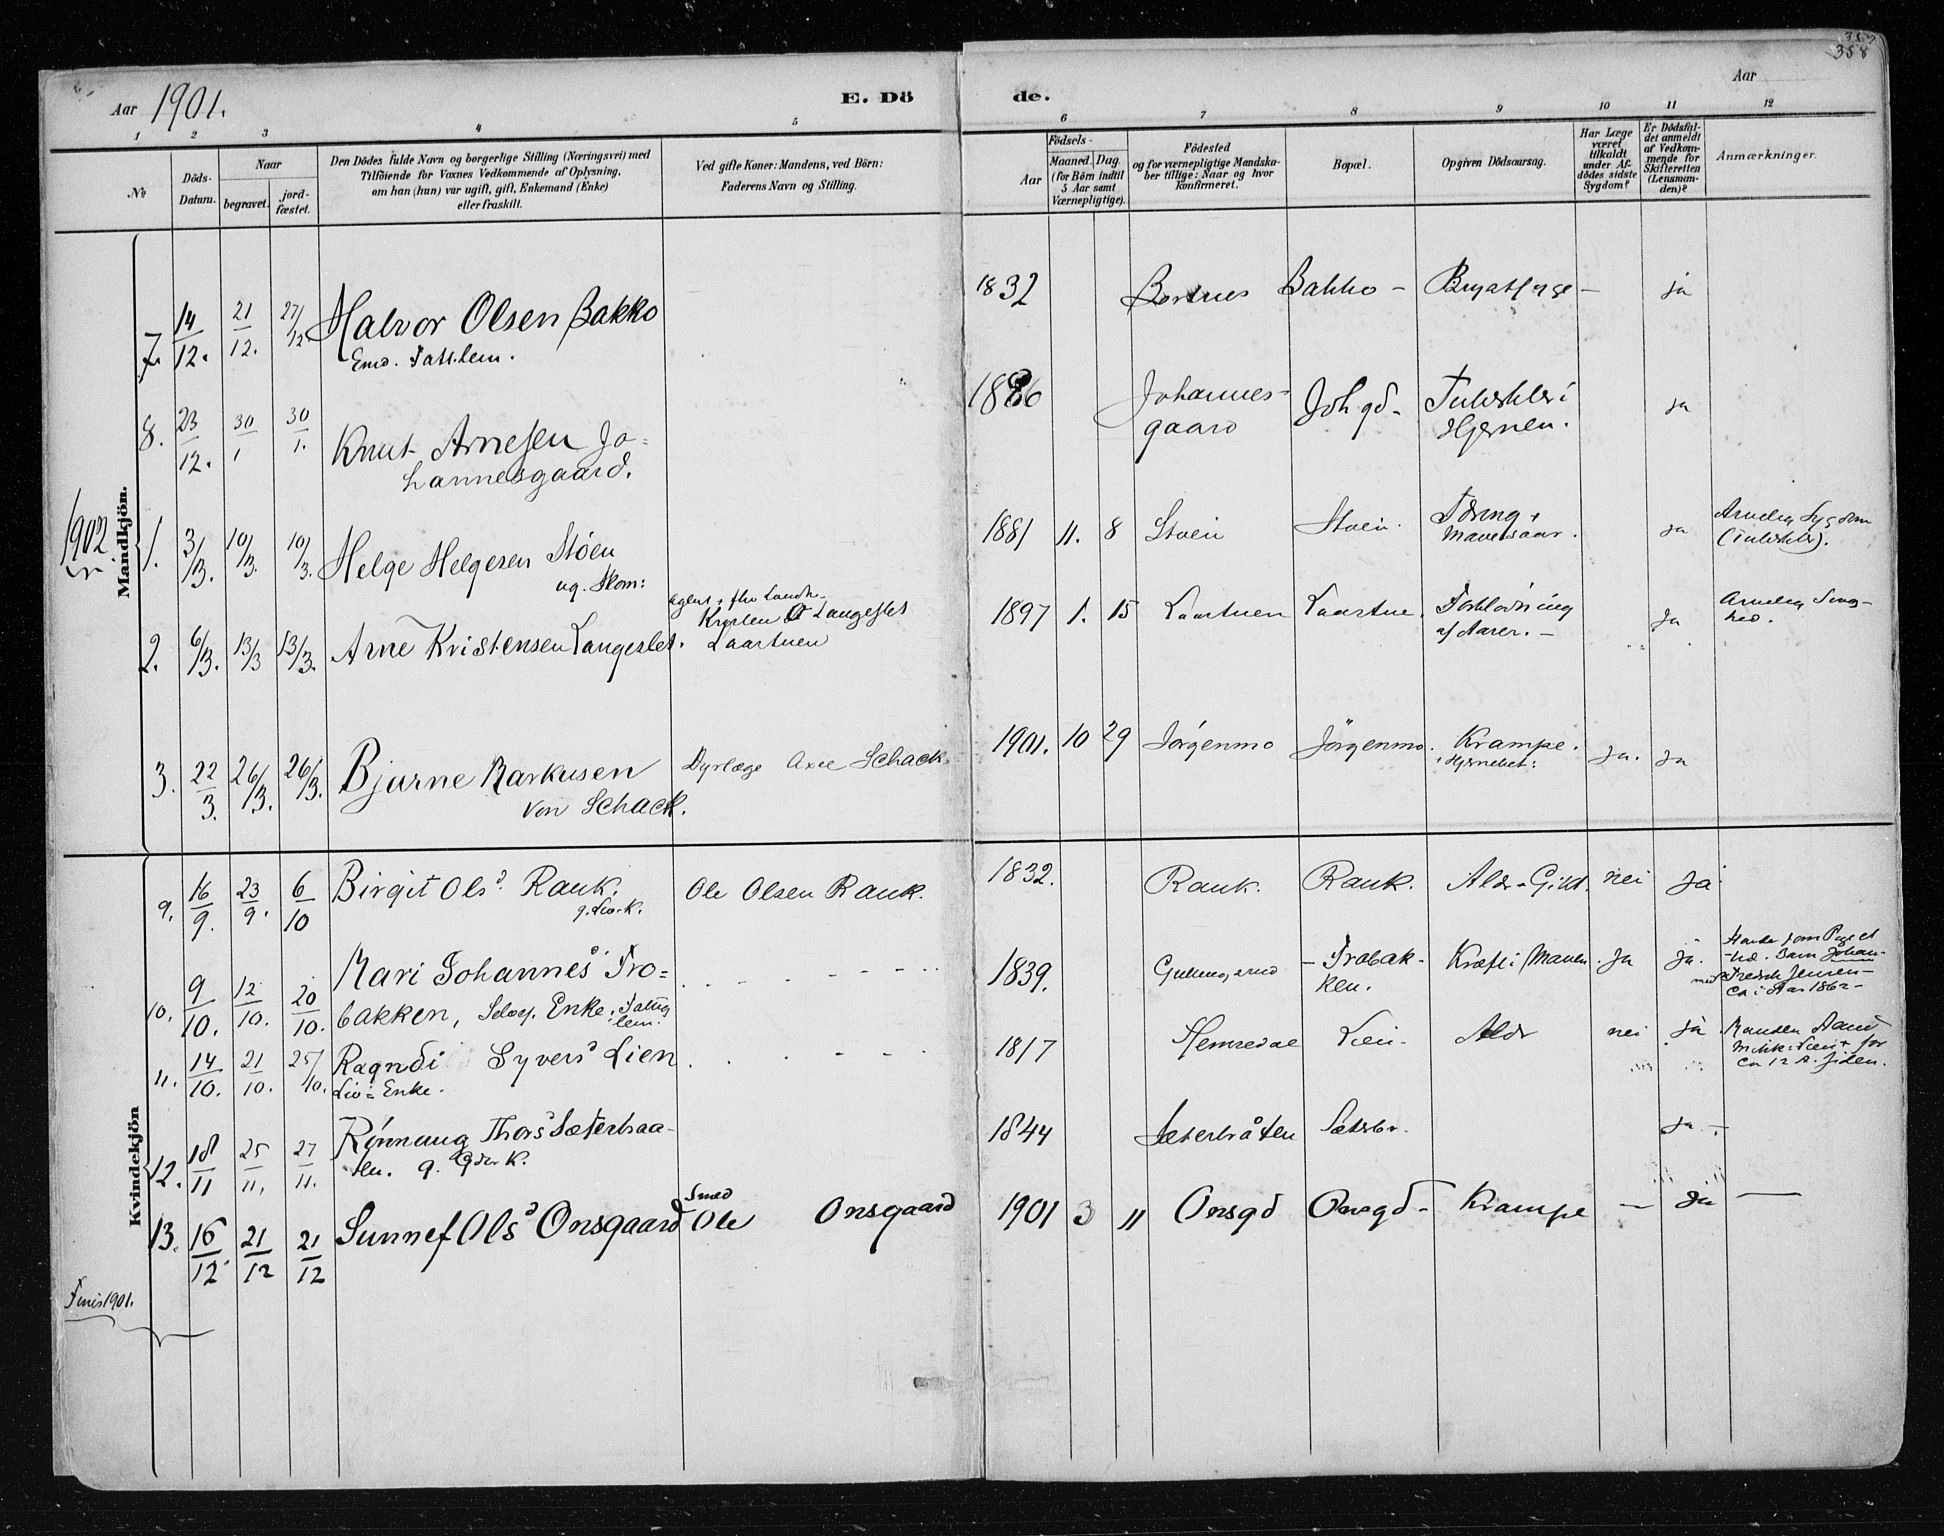 357
358
Aar 1901. E. Dö de. Aar
1 2 3 4 5 6 7 8 9 10 11 12
No
Döds-Datum.
Naar
begravet.
jord-fæstet.
Den Dödes fulde Navn og borgerlige Stilling (Næringsvei) med
Tilföiende for Voxnes Vedkommende af Oplysning,
om han (hun) var ugift, gift, Enkemand (Enke)
eller fraskilt.
Ved gifte Koner: Mandens, ved Börn:
Faderens Navn og Stilling.
Aar
Födsels-
Maaned. Dag.
(for Börn indtil
5 Aar samt
Værnepligtige).
Födested
og for værnepligtige Mandska-
ber tillige: Naar og hvor
konfirmeret.
Bopæl.
Opgiven Dödsaarsag.
Har Læge
været
tilkaldt
under Af-
dödes sidste
Sygdom?
Er Dödsfal-
det anmeldt
af Vedkom-
mende for
Skifteretten
(Lensman-
den)?
Anmærkninger.
Mandkjön.
7. 14/12. 21/12. 27/12. Halvor Olsen Bakko 1832 Bakko – ja
8. 23/12. 30/1 30/1. Knut Arnesen Jo=
hannesgaard. 1886 Johannes-
gaard Joh gd – Hjernen. ja
1902
1. 3/3. 10/3. 10/3. Helge Helgesen Støen
ug. 1881 11. 8 Stoen Støen. ja
2. 6/3. 13/3 13/3. Arne Kristensen Langeslet. Langeslet
Laartuen 1897 1. 15 Laartuen Laartue. af Aarer. – ja
3. 22/3. 26/3. 26/3. Bjarne Markusen
von Schack. Dyrlæge Axel Schack. 1901. 10 29 Jörgenmo Jörgenmo. Krampe. ja. ja
Kvindekjön
9. 16/9. 23/9. 6/10 Birgit Olsd. Rauk. Ole Olsen Rauk. 1832. Rauk. Rauk. nei ja
10. 9/10. 12/10. 20/10. Mari Johannesd Tro=
bakken, Enke. 1839. – Trobak-
ken. Kræft i Maven. Ja ja. Johan-
Jensen –
1862 –
11. 14/10. 21/10. 25/10. Ragndi Syversd Lien
Enke. 1817 Hemsedal Lien. Aldr nei ja
12. 18/11 25/11. 27/11. Rønnaug Thorsd Sæterbraa-
ten. g. 1844 Sæterbråten ja –
13. 16/12. 21/12 21/12 Sunnef Olsd Onsgaard Smed
Ole Onsgaard 1901 3 11 Onsgd Onsgd – Krampe – Ja –
Finis 1901.